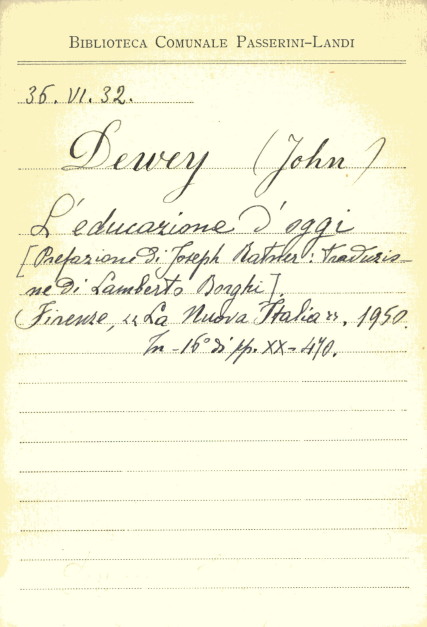 BIBLIOTECA COMUNALE PASSERINI-LANDI
36. VI. 32.
Dewey (John)
L'educazione d'oggi
[Prefazione di Joseph Ratner: traduzio-
ne di Lamberto Borghi].
(Firenze, "La Nuova Italia", 1950.
In-16° di pp. XX-470.